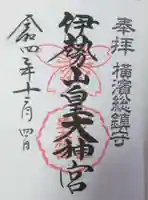 奉拝
横濱総鎮守
伊勢山皇大神宮
令和四年十二月四日